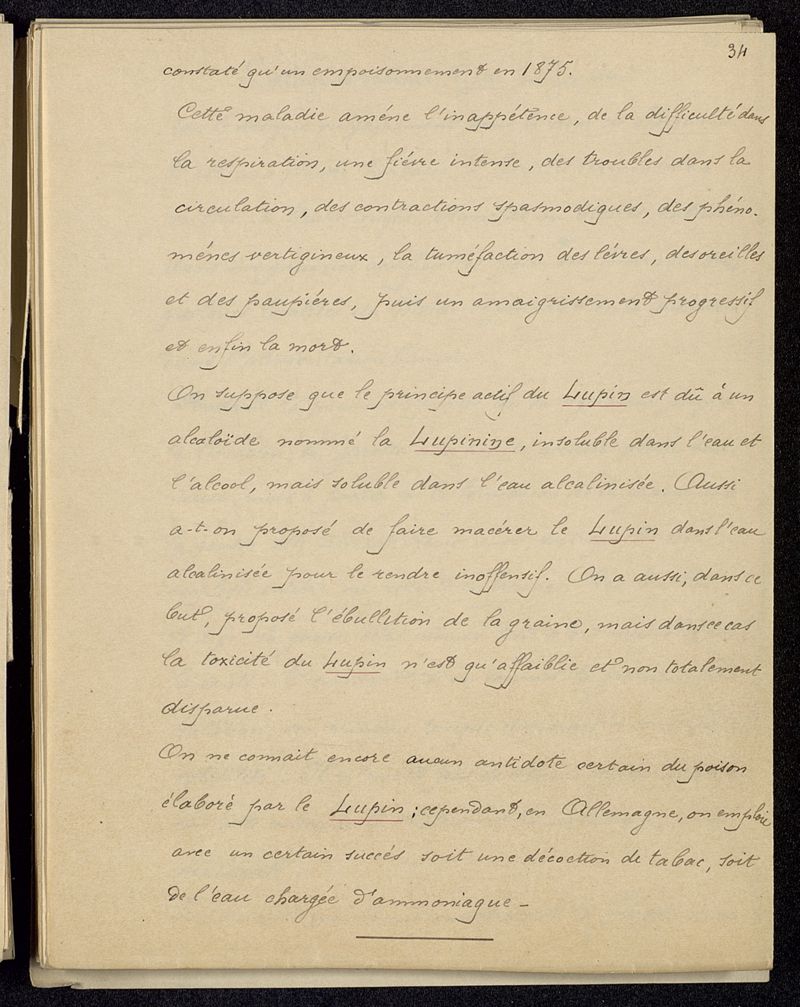 34
constaté qu'un empoisonnement en 1875.
Cette maladie améne l'inappétence, de la difficulté dans
la respiration, une fiévre intense, des troubles dans la
circulation, des contractions spasmodiques, des phéno-
ménes vertigineux, la tuméfaction des lévres, des oreilles
et des paupiéres, puis un amaigrissement progressif
et enfin la mort.
On suppose que le principe actif du Lupin est dû à un
alcaloïde nommé la Lupinine, insoluble dans l'eau et
l'alcool, mais soluble dans l'eau alcalinisée. Aussi
a-t-on proposé de faire macérer le Lupin dans l'eau
alcalinisée pour le rendre inoffensif. On a aussi, dans ce
but, proposé l'ébullition de la graine, mais dans ce cas
la toxicité du Lupin n'est qu'affaiblie et non totalement
disparue.
On ne connait encore aucun antidote certain du poison
élaboré par le Lupin ; cependant, en Allemagne, on emploie
avec un certain succés soit une décoction de tabac, soit
de l'eau chargée d'ammoniaque –